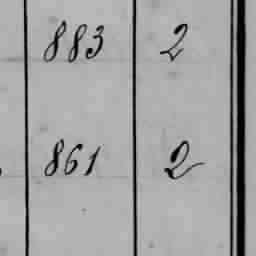 883 2
861 2